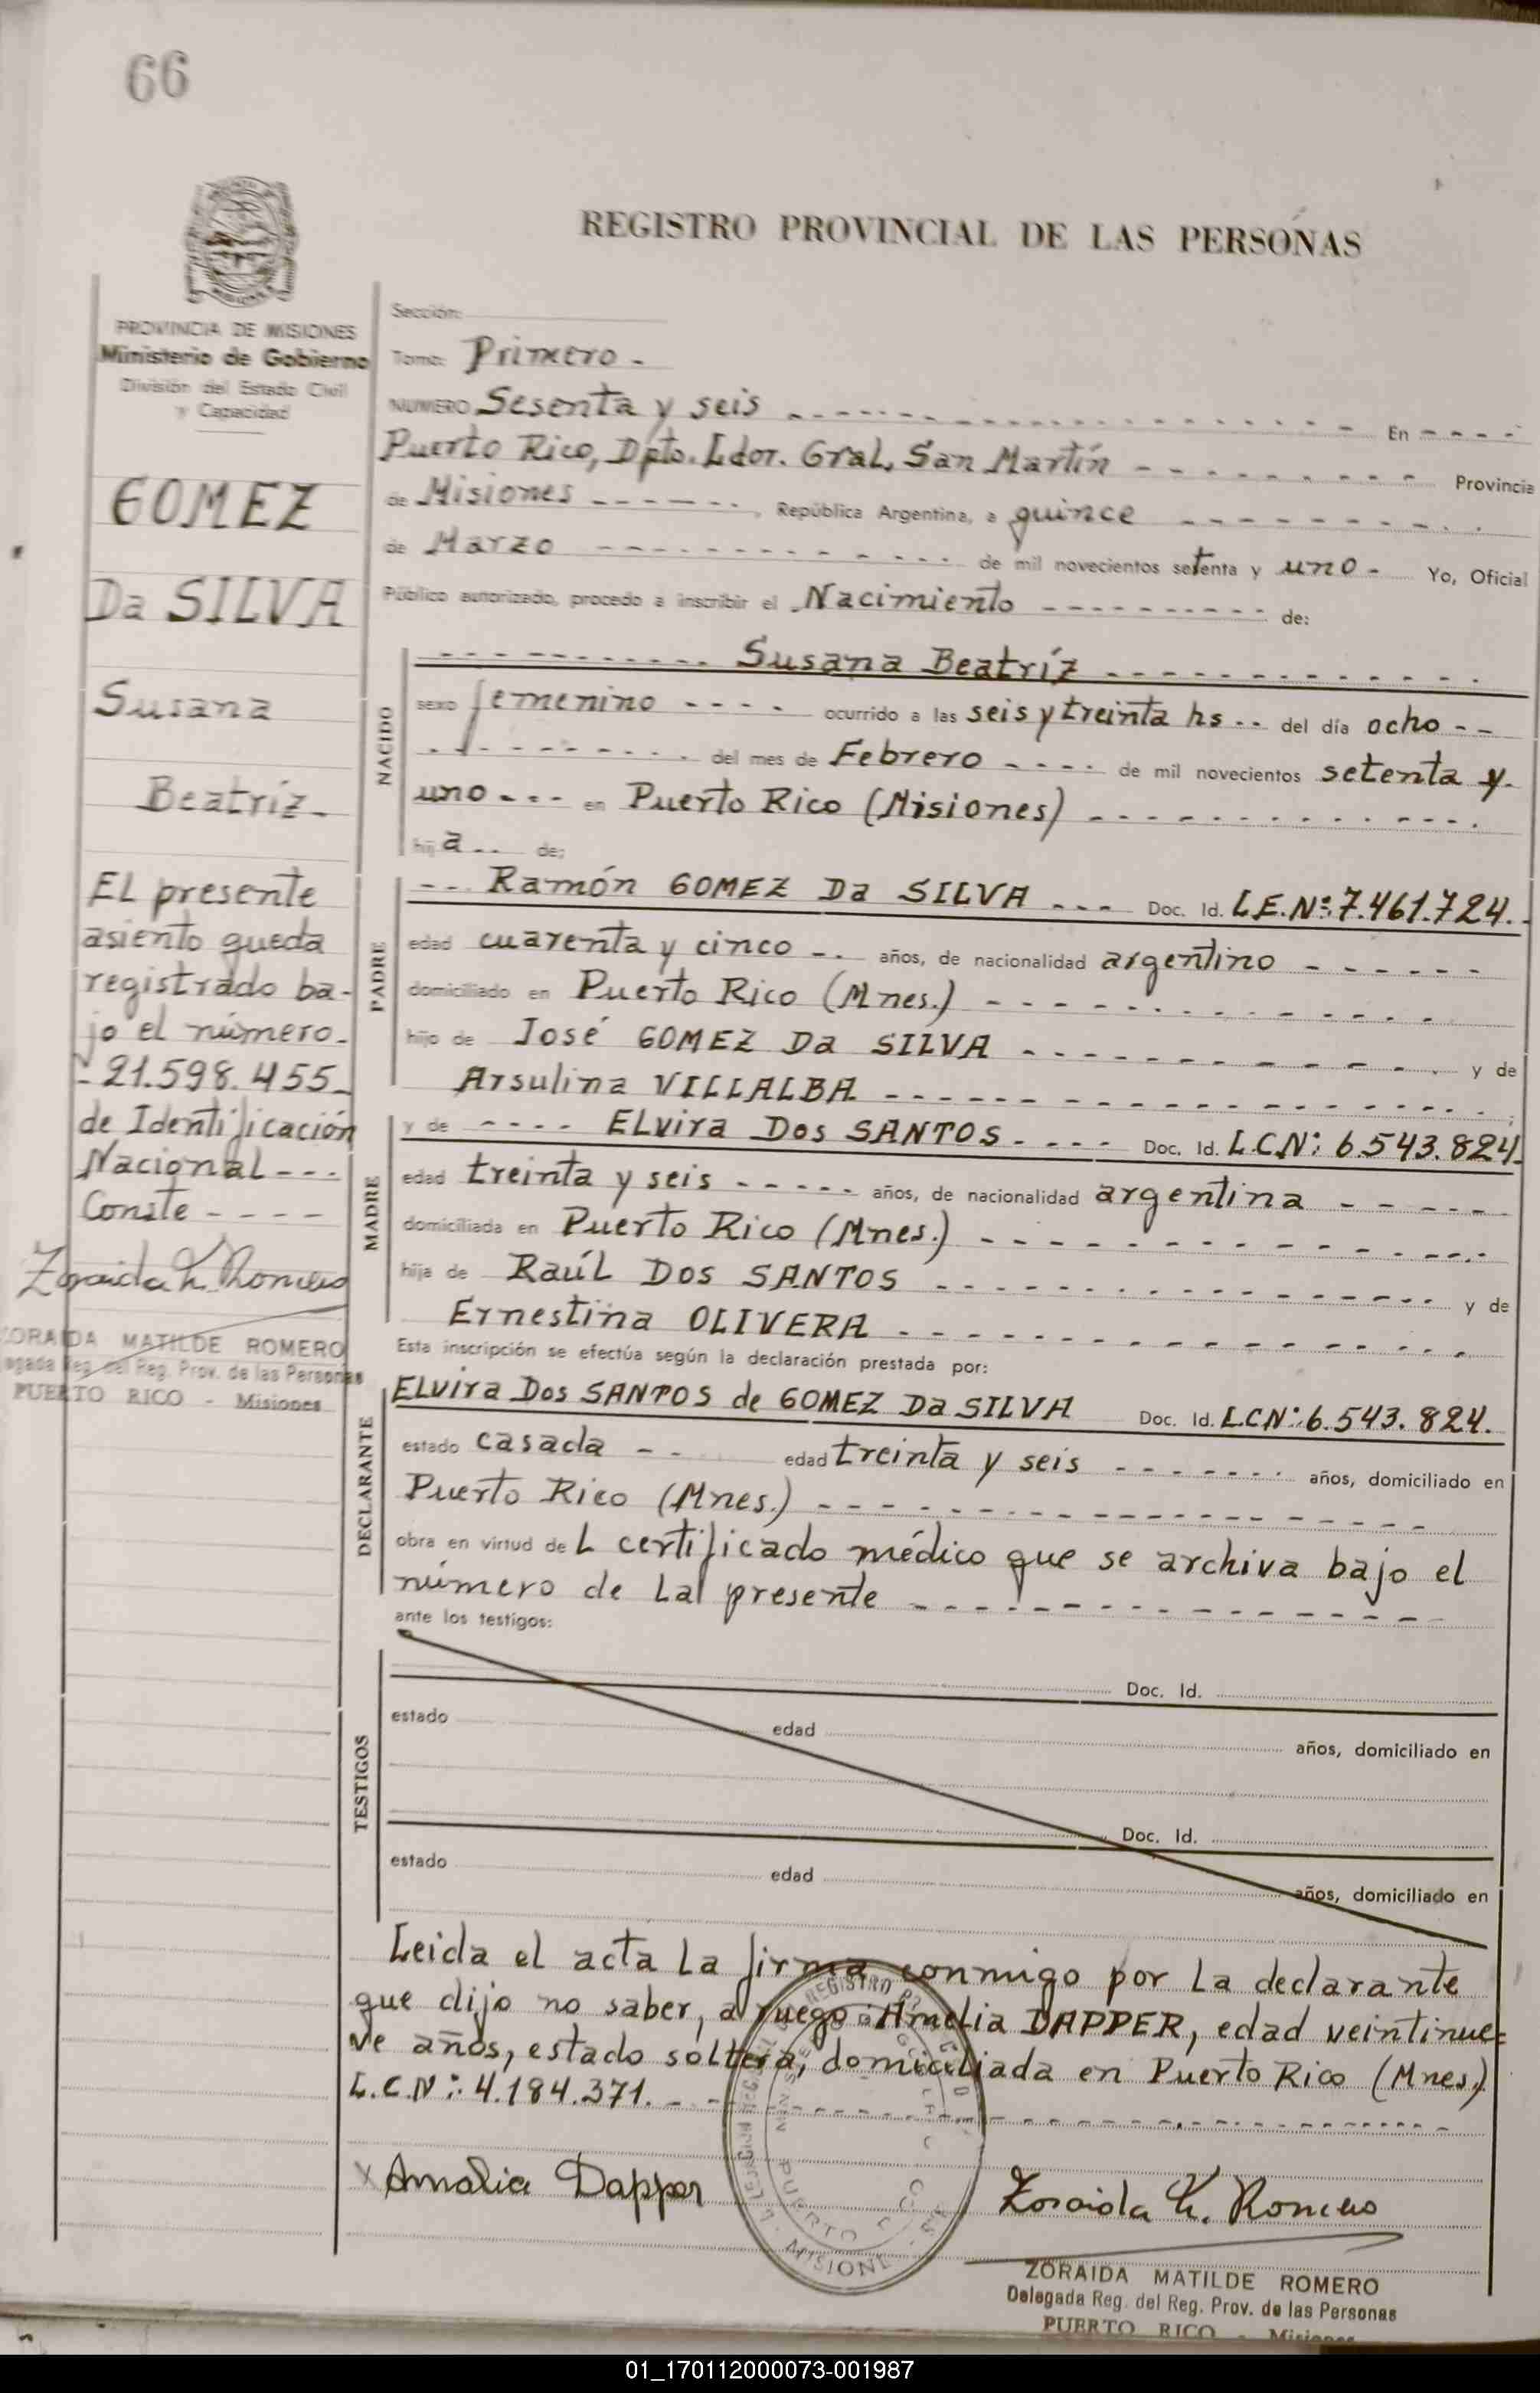 66
REGISTRO PROVINCIAL DE LAS PERSONAS
PROVINCIA DE MISIONES
Ministerio de Gobierno
División del Estado Civil
y Capacidad
GOMEZ
Da SILVA
Susana
Beatríz-
EL presente
asiento queda
registrado ba-
jo el número-
-21.598.455-
de Identificación
Nacional ---
Conste ----
Zoraida M. Romero
ZORAIDA MATILDE ROMERO
Reg. del Reg. Prov. de las Personas
PUERTO RICO - Misiones
Sección:
Tomo: Primero -
NUMERO Sesenta y seis ---------- En ----
Puerto Rico, Dpto. Ldor. Gral. San Martín -------- Provincia
de Misiones -------, República Argentina, a quince ----------
de Marzo ------------ de mil novecientos setenta y uno - Yo, Oficial
Público autorizado, procedo a inscribir el Nacimiento ---------- de:
NACIDO
---------- Susana Beatríz ----------
sexo femenino ---- ocurrido a las seis y treinta hs -- del día ocho --
---------- del mes de Febrero ---- de mil novecientos setenta y-
uno --- en Puerto Rico (Misiones) ------------
hij a -- de:
PADRE
--- Ramón GOMEZ Da SILVA --- Doc. Id. L.E.Nº:7.461.724.-
edad cuarenta y cinco -- años, de nacionalidad argentino ------
domiciliado en Puerto Rico (Mnes.) ------------
hijo de José GOMEZ Da SILVA ---------- y de
Arsulina VILLALBA ----------------
MADRE
y de ---- ELvira Dos SANTOS ---- Doc. Id. L.C.N: 6.543.824.
edad treinta y seis ----- años, de nacionalidad argentina ------
domiciliada en Puerto Rico (Mnes.) --------------
hija de RaúL DOS SANTOS ------------ y de
Ernestina OLIVERA --------------
Esta inscripción se efectúa según la declaración prestada por:
DECLARANTE
ELvira Dos SANTOS de GOMEZ Da SILVA Doc. Id. L.C.N: 6.543.824.
estado casada -- edad treinta y seis ------- años, domiciliado en
Puerto Rico (Mnes.) ----------------
obra en virtud de L certificado médico que se archiva bajo el
número de La presente ----------------
ante los testigos:
TESTIGOS
Doc. Id.
estado edad años, domiciliado en
Doc. Id.
estado edad años, domiciliado en
Leida el acta La firma conmigo por La declarante
que dijo no saber, a ruego: Amelia DAPPER, edad veintinue=
ve años, estado soltera, domiciliada en Puerto Rico (Mnes.)
L.C.N:. 4.184.371. ----------------
x Amalia Dapper
Zoraida M. Romero
ZORAIDA MATILDE ROMERO
Delegada Reg. del Reg. Prov. de las Personas
PUERTO RICO - Misiones
01_170112000073-001987